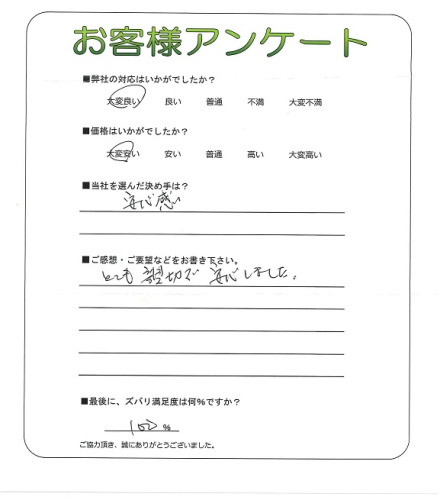 お客様アンケート
■弊社の対応はいかがでしたか？
大変良い 良い 普通 不満 大変不満
■価格はいかがでしたか？
大変安い 安い 普通 高い 大変高い
■当社を選んだ決め手は？
安心感
■ご感想・ご要望などをお書き下さい。
とても 親切で 安心しました。
■最後に、ズバリ満足度は何％ですか？
100 %
ご協力頂き、誠にありがとうございました。